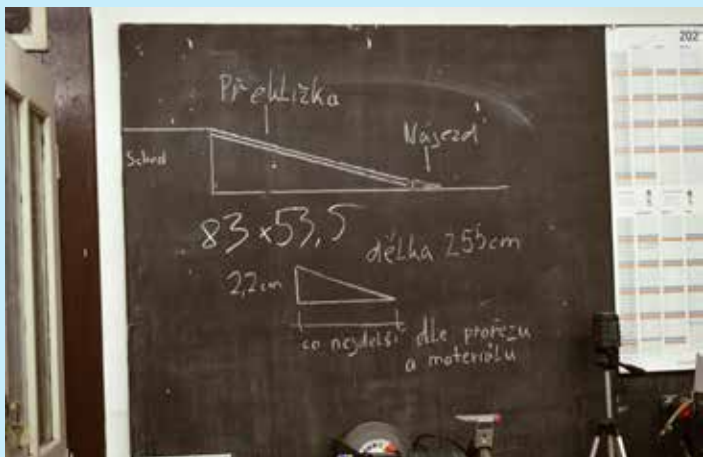 Překližka
Nájezd
Schod
83 x 53,5
délka 255cm
2,2cm
co nejdelší dle prořezu
a materiálu
202